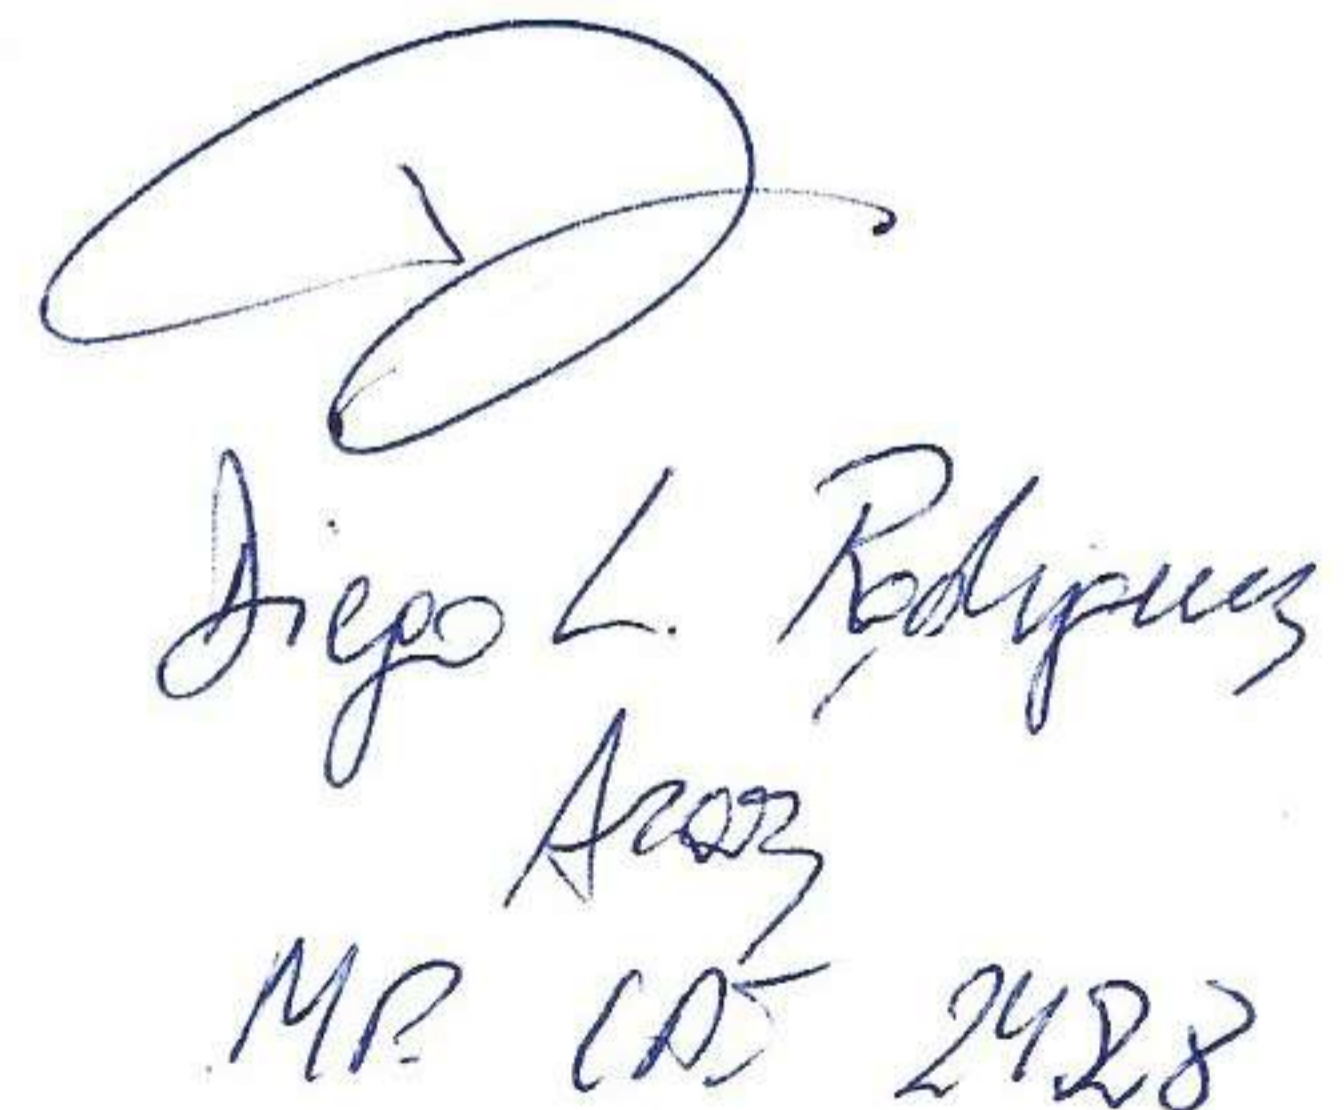 Diego L. Rodriguez
Araoz
MP. CAJ 2428